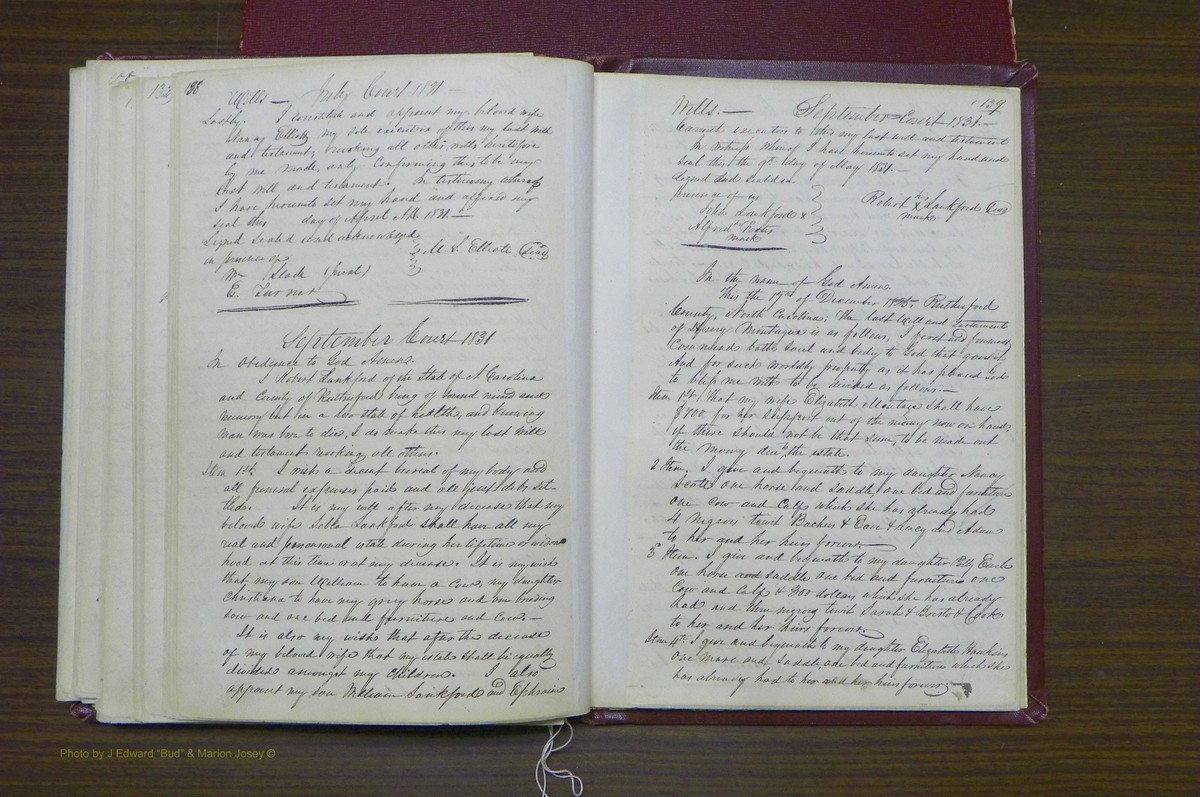 138
Wills — July Court 1831 —
Lastly. I constitute and appoint my beloved wife
Nancy Elliott my sole executrix of this my last will
and testament, revoking all other wills heretofore
by me made, only confirming this to be my
last will and testament. In testimony whereof
I have hereunto set my hand and affixed my
seal this day of April AD 1831.
Signed Sealed and acknowledged
in presence of M. S. Elliott (Seal)
Wm Slade (Jurat)
E. Turner
September Court 1831
In obedience to God Amen.
I Robert Lankford of the State of N Carolina
and County of Rutherford being of sound mind and
memory but in a low state of health, and knowing
man was born to die, I do make this my last will
and testament revoking all others.
Item 1st. I wish a decent burial of my body and
all funeral expenses paid and all just debts set
tled. It is my will after my decease that my
beloved wife Lebla Lankford shall have all my
real and personal estate during her lifetime or widow
hood at this time or at my decease. It is my wish
that my son William to have a Cow, my daughter
Christiana to have my grey horse and one breeding
sow and one bed and furniture and Cow. —
It is also my wish that after the decease
of my beloved wife that my estate shall be equally
divided amongst my children. I also
appoint my son William Lankford and Ephraim
139
Wills. — September Court 1831. —
executor to this my last will and testament
In witness whereof I have hereunto set my hand and
seal this the 9th day of May 1831. —
Signed and sealed in
presence of us
Robert his x mark Lankford (Seal)
John Lankford x
Alfred Porter
mark
In the name of God Amen.
This the 17th of December 1825. Rutherford
County, North Carolina: The last Will and Testament
of Henry Montague is as follows, I first and foremost
Commend both soul and body to God that gave it
And for such worldly property as it has pleased God
to bless me with to be divided as follows: —
Item 1st. That my wife Elizabeth Montage shall have
$700 for her support out of the money now on hand,
if there should not be that sum, to be made out
the money due to the estate.
2 Item. I give and bequeath to my daughter Nancy
Scott one horse and saddle, one bed and furniture
one Cow and Calf which she has already had
4 Negroes towit Backus & Eave & Lucy and Adam
to her and her heirs forever.
3 Item. I give and bequeath to my daughter Polly Earle
one horse and saddle one bed and furniture one
Cow and Calf & 300 dollars which she has already
had and three negroes towit Sarah & Bristo & Cook
to her and her heirs forever.
Item 4th I give and bequeath to my daughter Elizabeth Hawkins
one mare and saddle, one bed and furniture which she
has already had to her and her heirs forever
Photo by J Edward "Bud" & Marion Josey ©